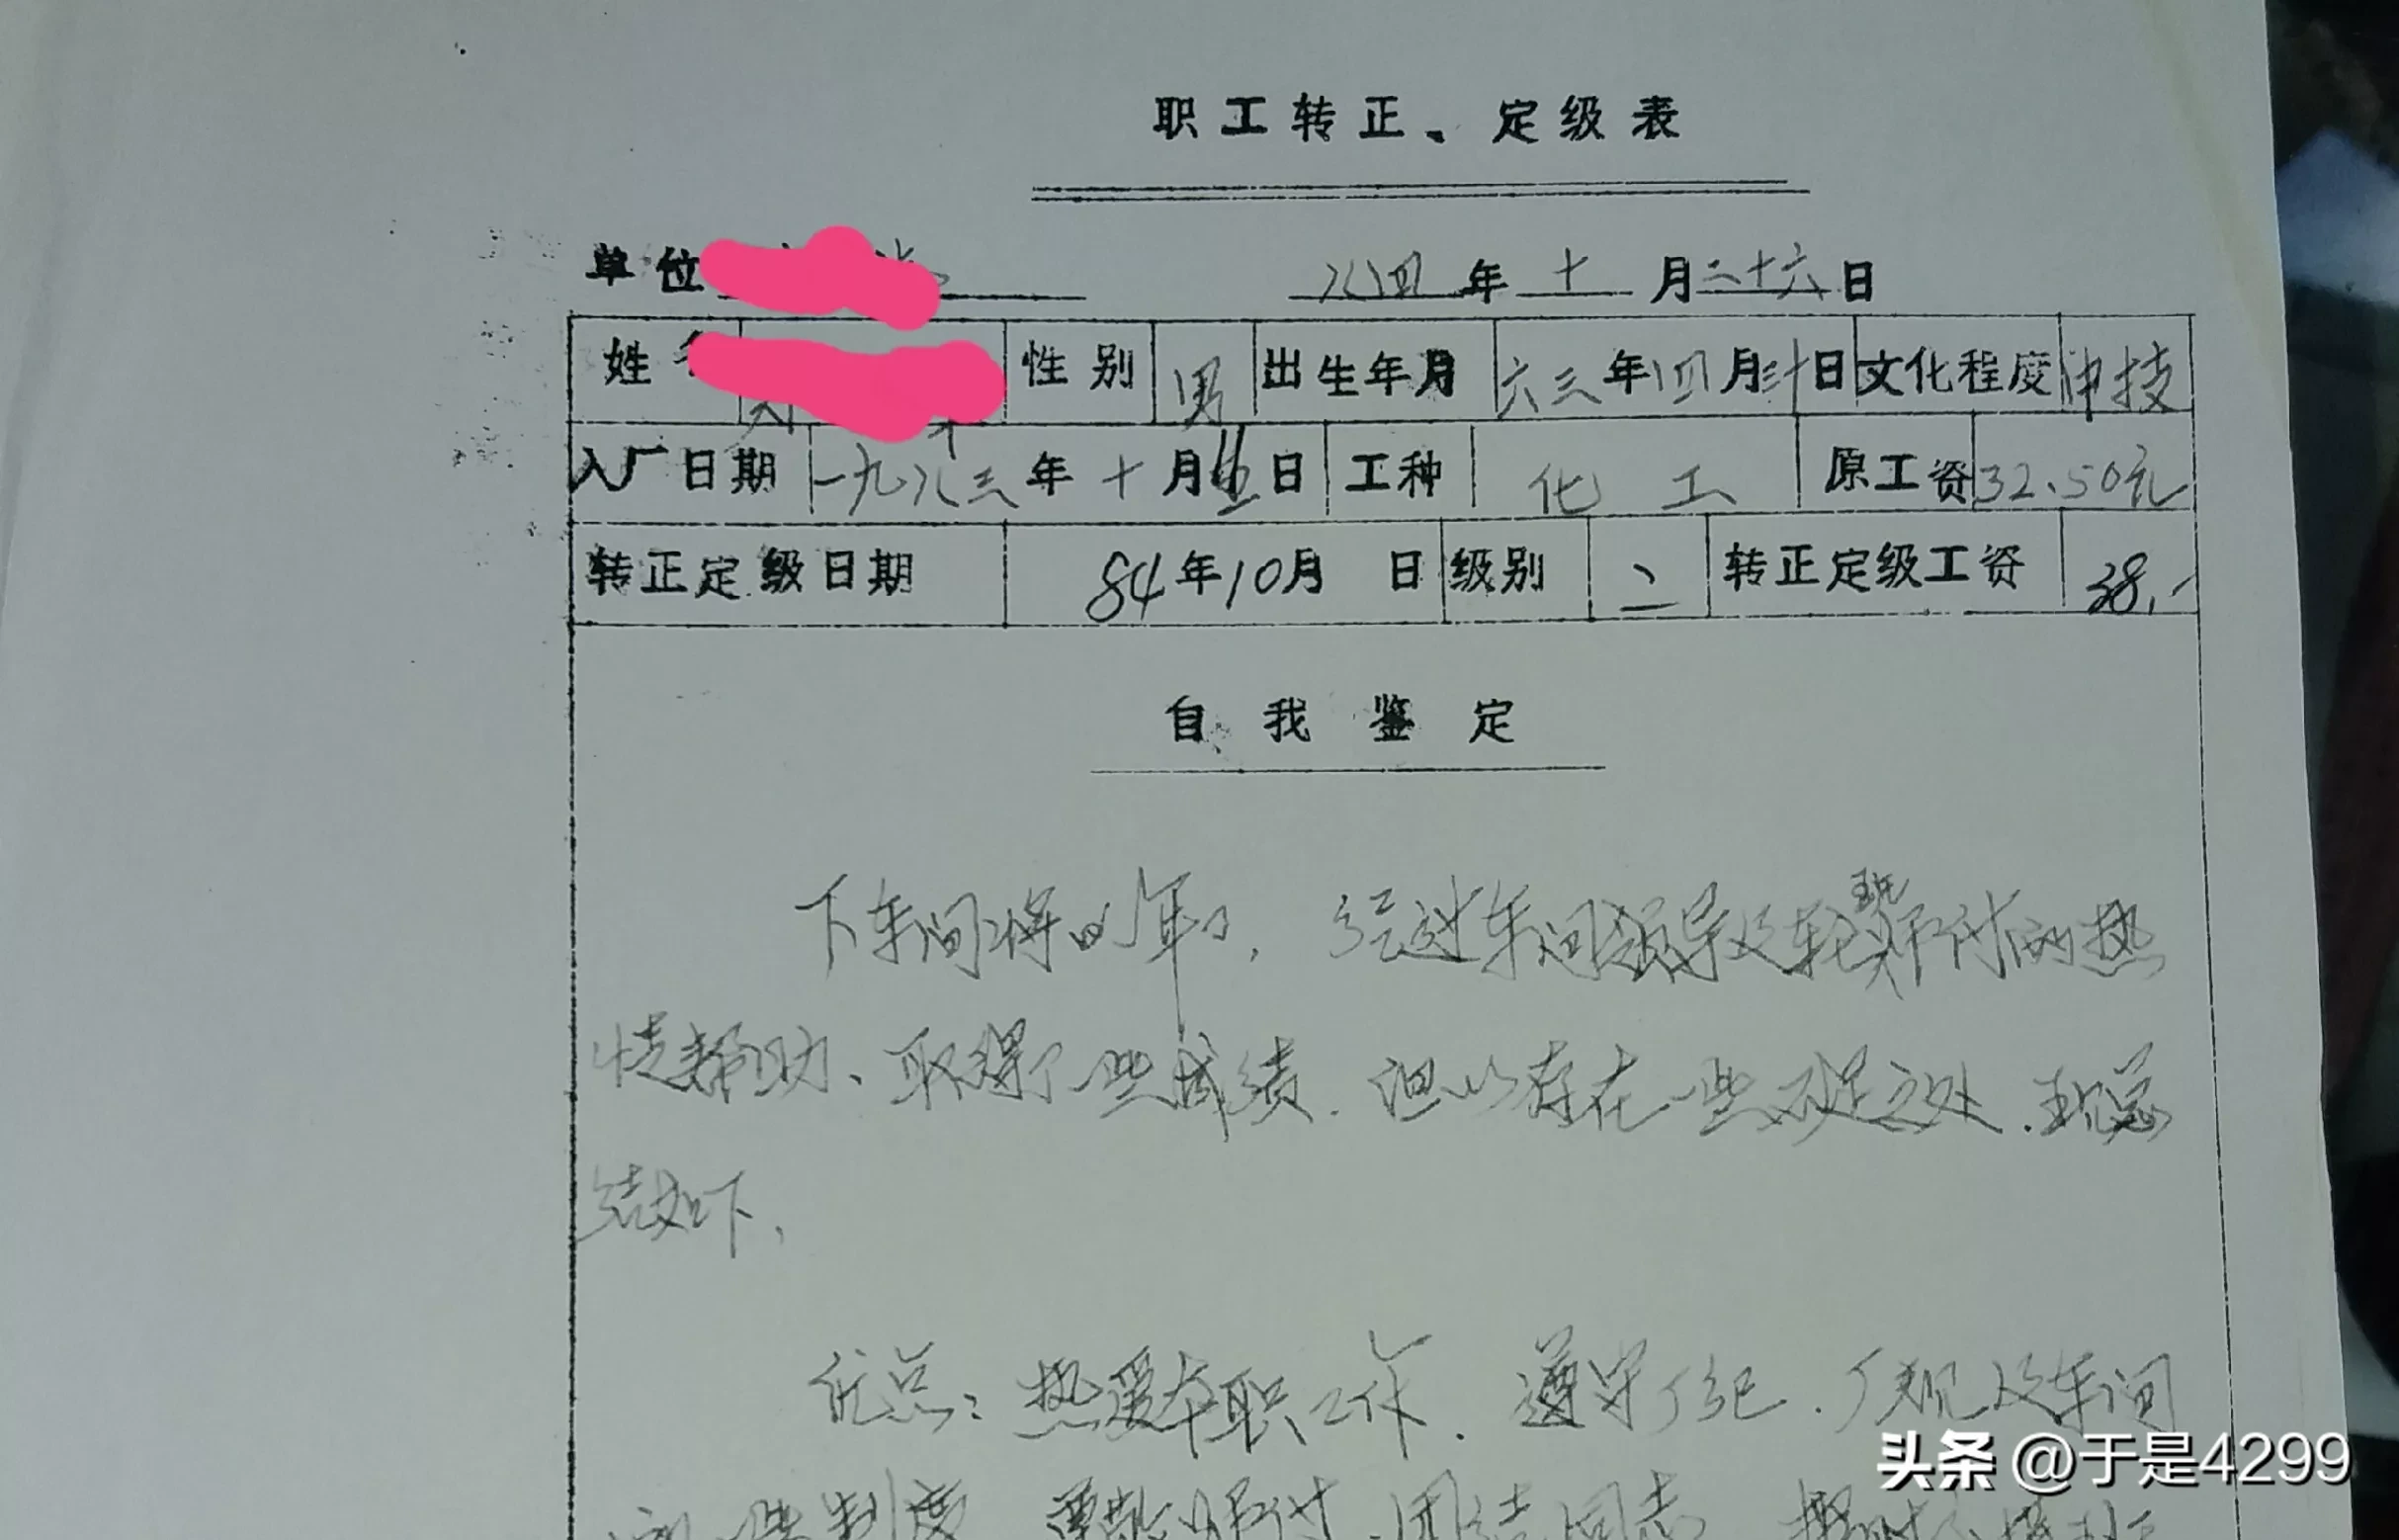 职工转正、定级表
单位 八四年十月二十六日
姓 性别 男 出生年月 六三年四月三十日 文化程度 中技
入厂日期 一九八三年十月 日 工种 化工 原工资 32.50元
转正定级日期 84年10月 日 级别 二 转正定级工资 38.-
自我鉴定
下车间将近年了，经过车间领导及轮班师付的热
情帮助、取得了一些成绩.但以存在一些不足之处.现总
结如下、
优点：热爱本职工作.遵守厂纪.厂规及车间
制度 师付.团结同志
头条 @于是4299